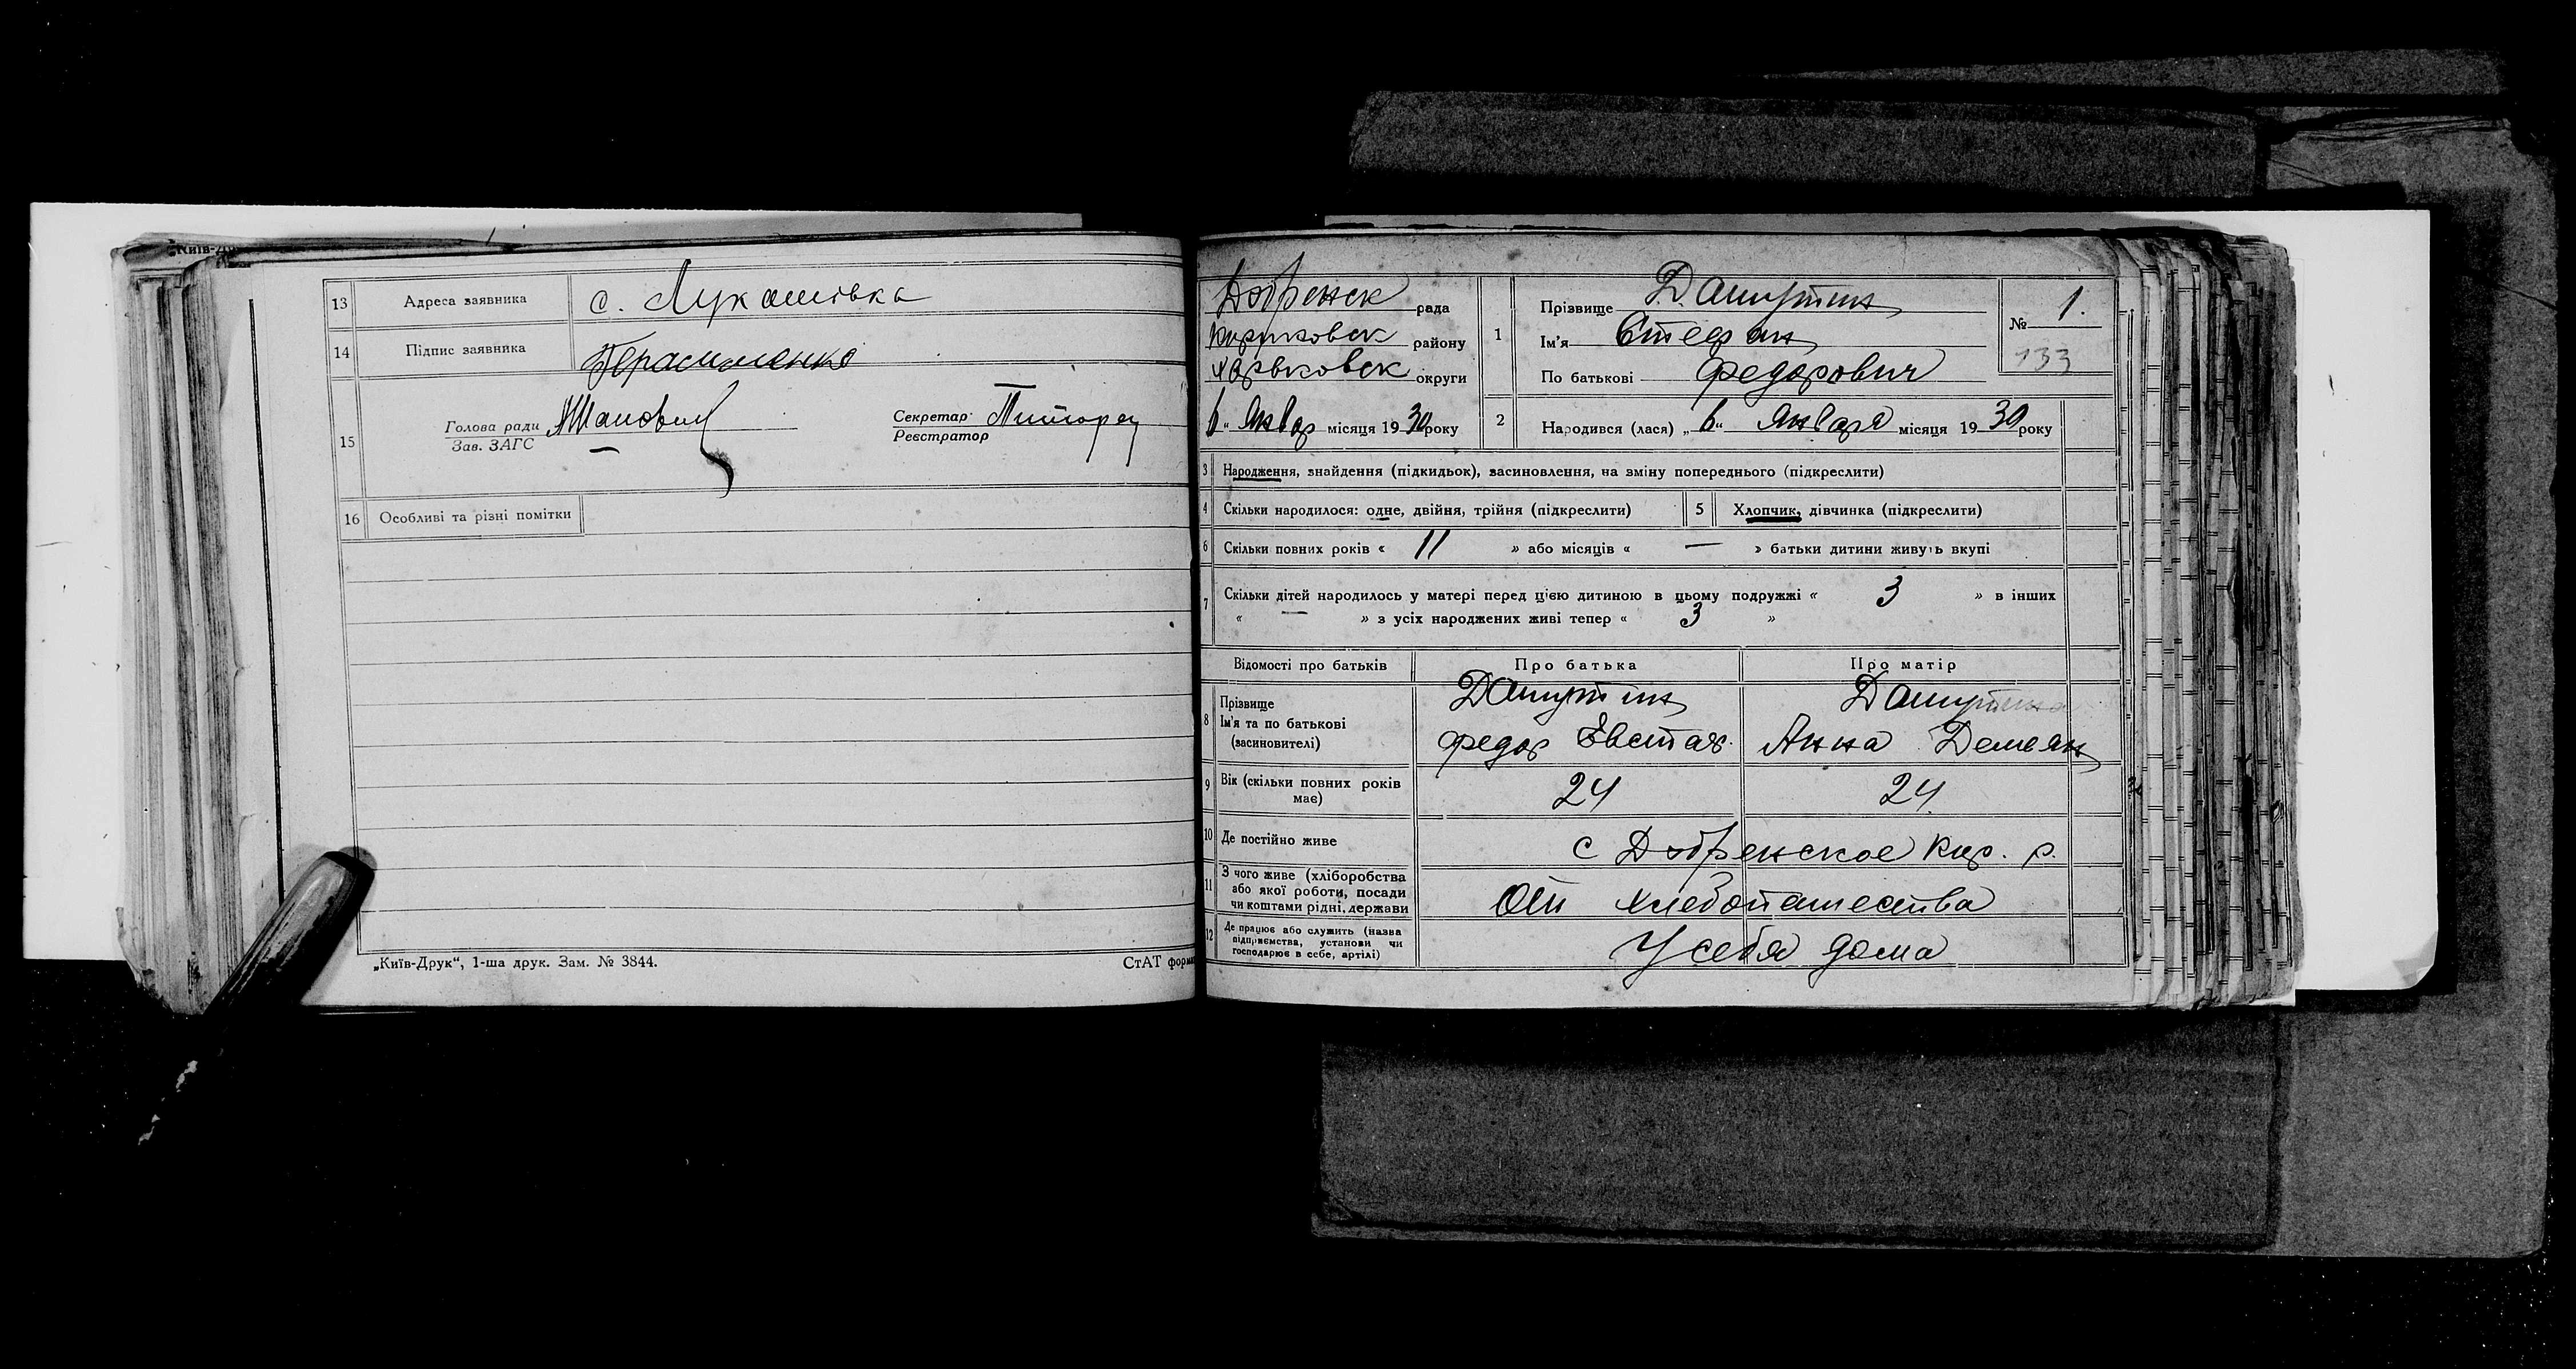 Київ-Др
13 Адреса заявника с. Лукашовка
14 Підпис заявника Герасименко
15 Голова ради
Зав. ЗАГС
Секретар
Реєстратор
16 Особливі та різні помітки
„Київ-Друк“, 1-ша друк. Зам. № 3844.
СтАТ форма
Добренск рада
района району
Харьковск округи
6 „ Январ місяця 1930 року
1 Прізвище Дашутин
Ім'я Стефан
По батькові Федорович
№ 1.
133
2 Народився (лася) „ 6 “ Января місяця 1930 року
3 Народження, знайдення (підкидьок), засиновлення, на зміну попереднього (підкреслити)
4 Скільки народилося: одне, двійня, трійня (підкреслити)
5 Хлопчик, дівчинка (підкреслити)
6 Скільки повних років « 11 » або місяців « — » батьки дитини живуть вкупі
7 Скільки дітей народилось у матері перед цією дитиною в цьому подружжі « 3 » в інших
« — » з усіх народжених живі тепер « 3 »
Відомості про батьків Про батька Про матір
8 Прізвище Дашутин Дашутина
Ім'я та по батькові Федор Евстах. Анна Демьян
(засиновителі)
9 Вік (скільки повних років має) 24 24
10 Де постійно живе с Добренское Кир. р.
11 З чого живе (хліборобства
або якої роботи, посади
чи коштами рідні, держави
От хлебопашества
12 Де працює або служить (назва
підприємства, установи чи
господарює в себе, артілі)
У себя дома